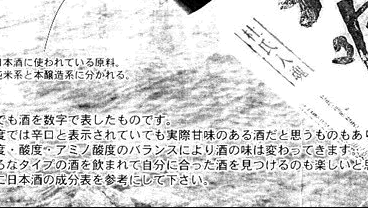 日本酒に使われている原料。
純米系と本醸造系に分かれる。
杜氏入魂
でも酒を数字で表したものです。
度では辛口と表示されていても実際甘味のある酒だと思うものもあり
度・酸度・アミノ酸度のバランスにより酒の味は変わってきます…
ろなタイプの酒を飲まれて自分に合った酒を見つけるのも楽しいと思
に日本酒の成分表を参考にして下さい。